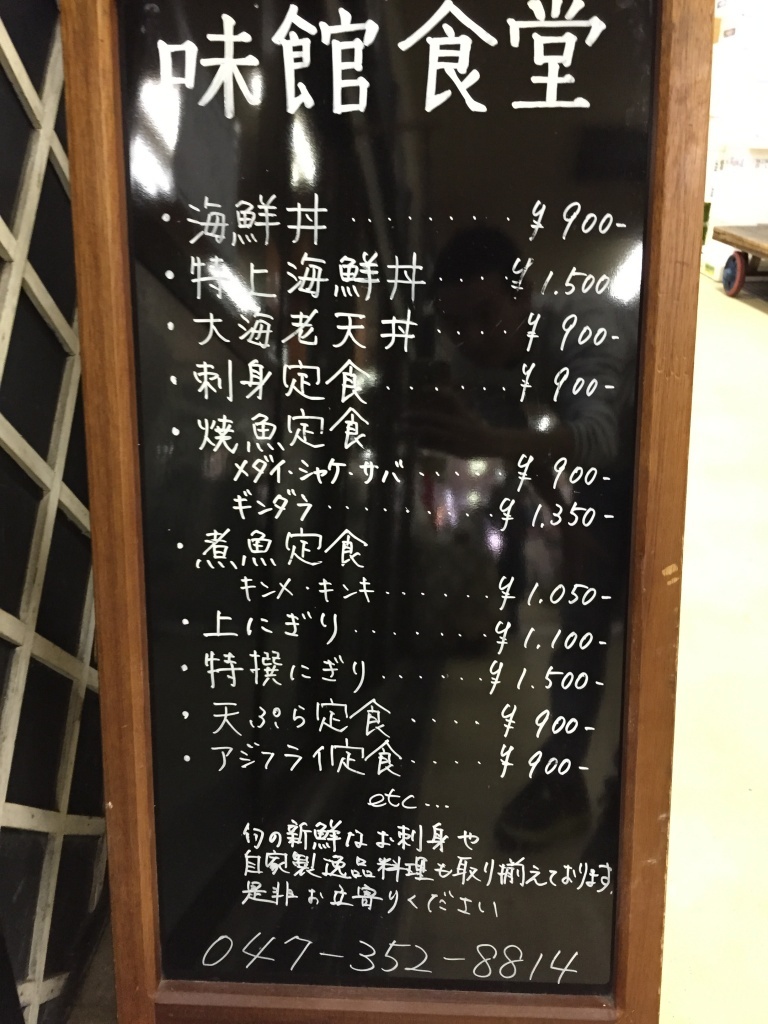 味館食堂
・海鮮丼 ......... ¥900-
・特上海鮮丼 .... ¥1.500
・大海老天丼 ..... ¥900-
・刺身定食 ....... ¥900-
・焼魚定食
メダイ・シャケ・サバ ...... ¥900-
ギンダラ .......... ¥1.350-
・煮魚定食
キンメ・キンキ ....... ¥1.050-
・上にぎり ....... ¥1.100-
・特撰にぎり ...... ¥1.500-
・天ぷら定食 .... ¥900-
・アジフライ定食 .... ¥900-
etc...
旬の新鮮なお刺身や
自家製逸品料理も取り揃えております。
是非お立寄りください
047-352-8814